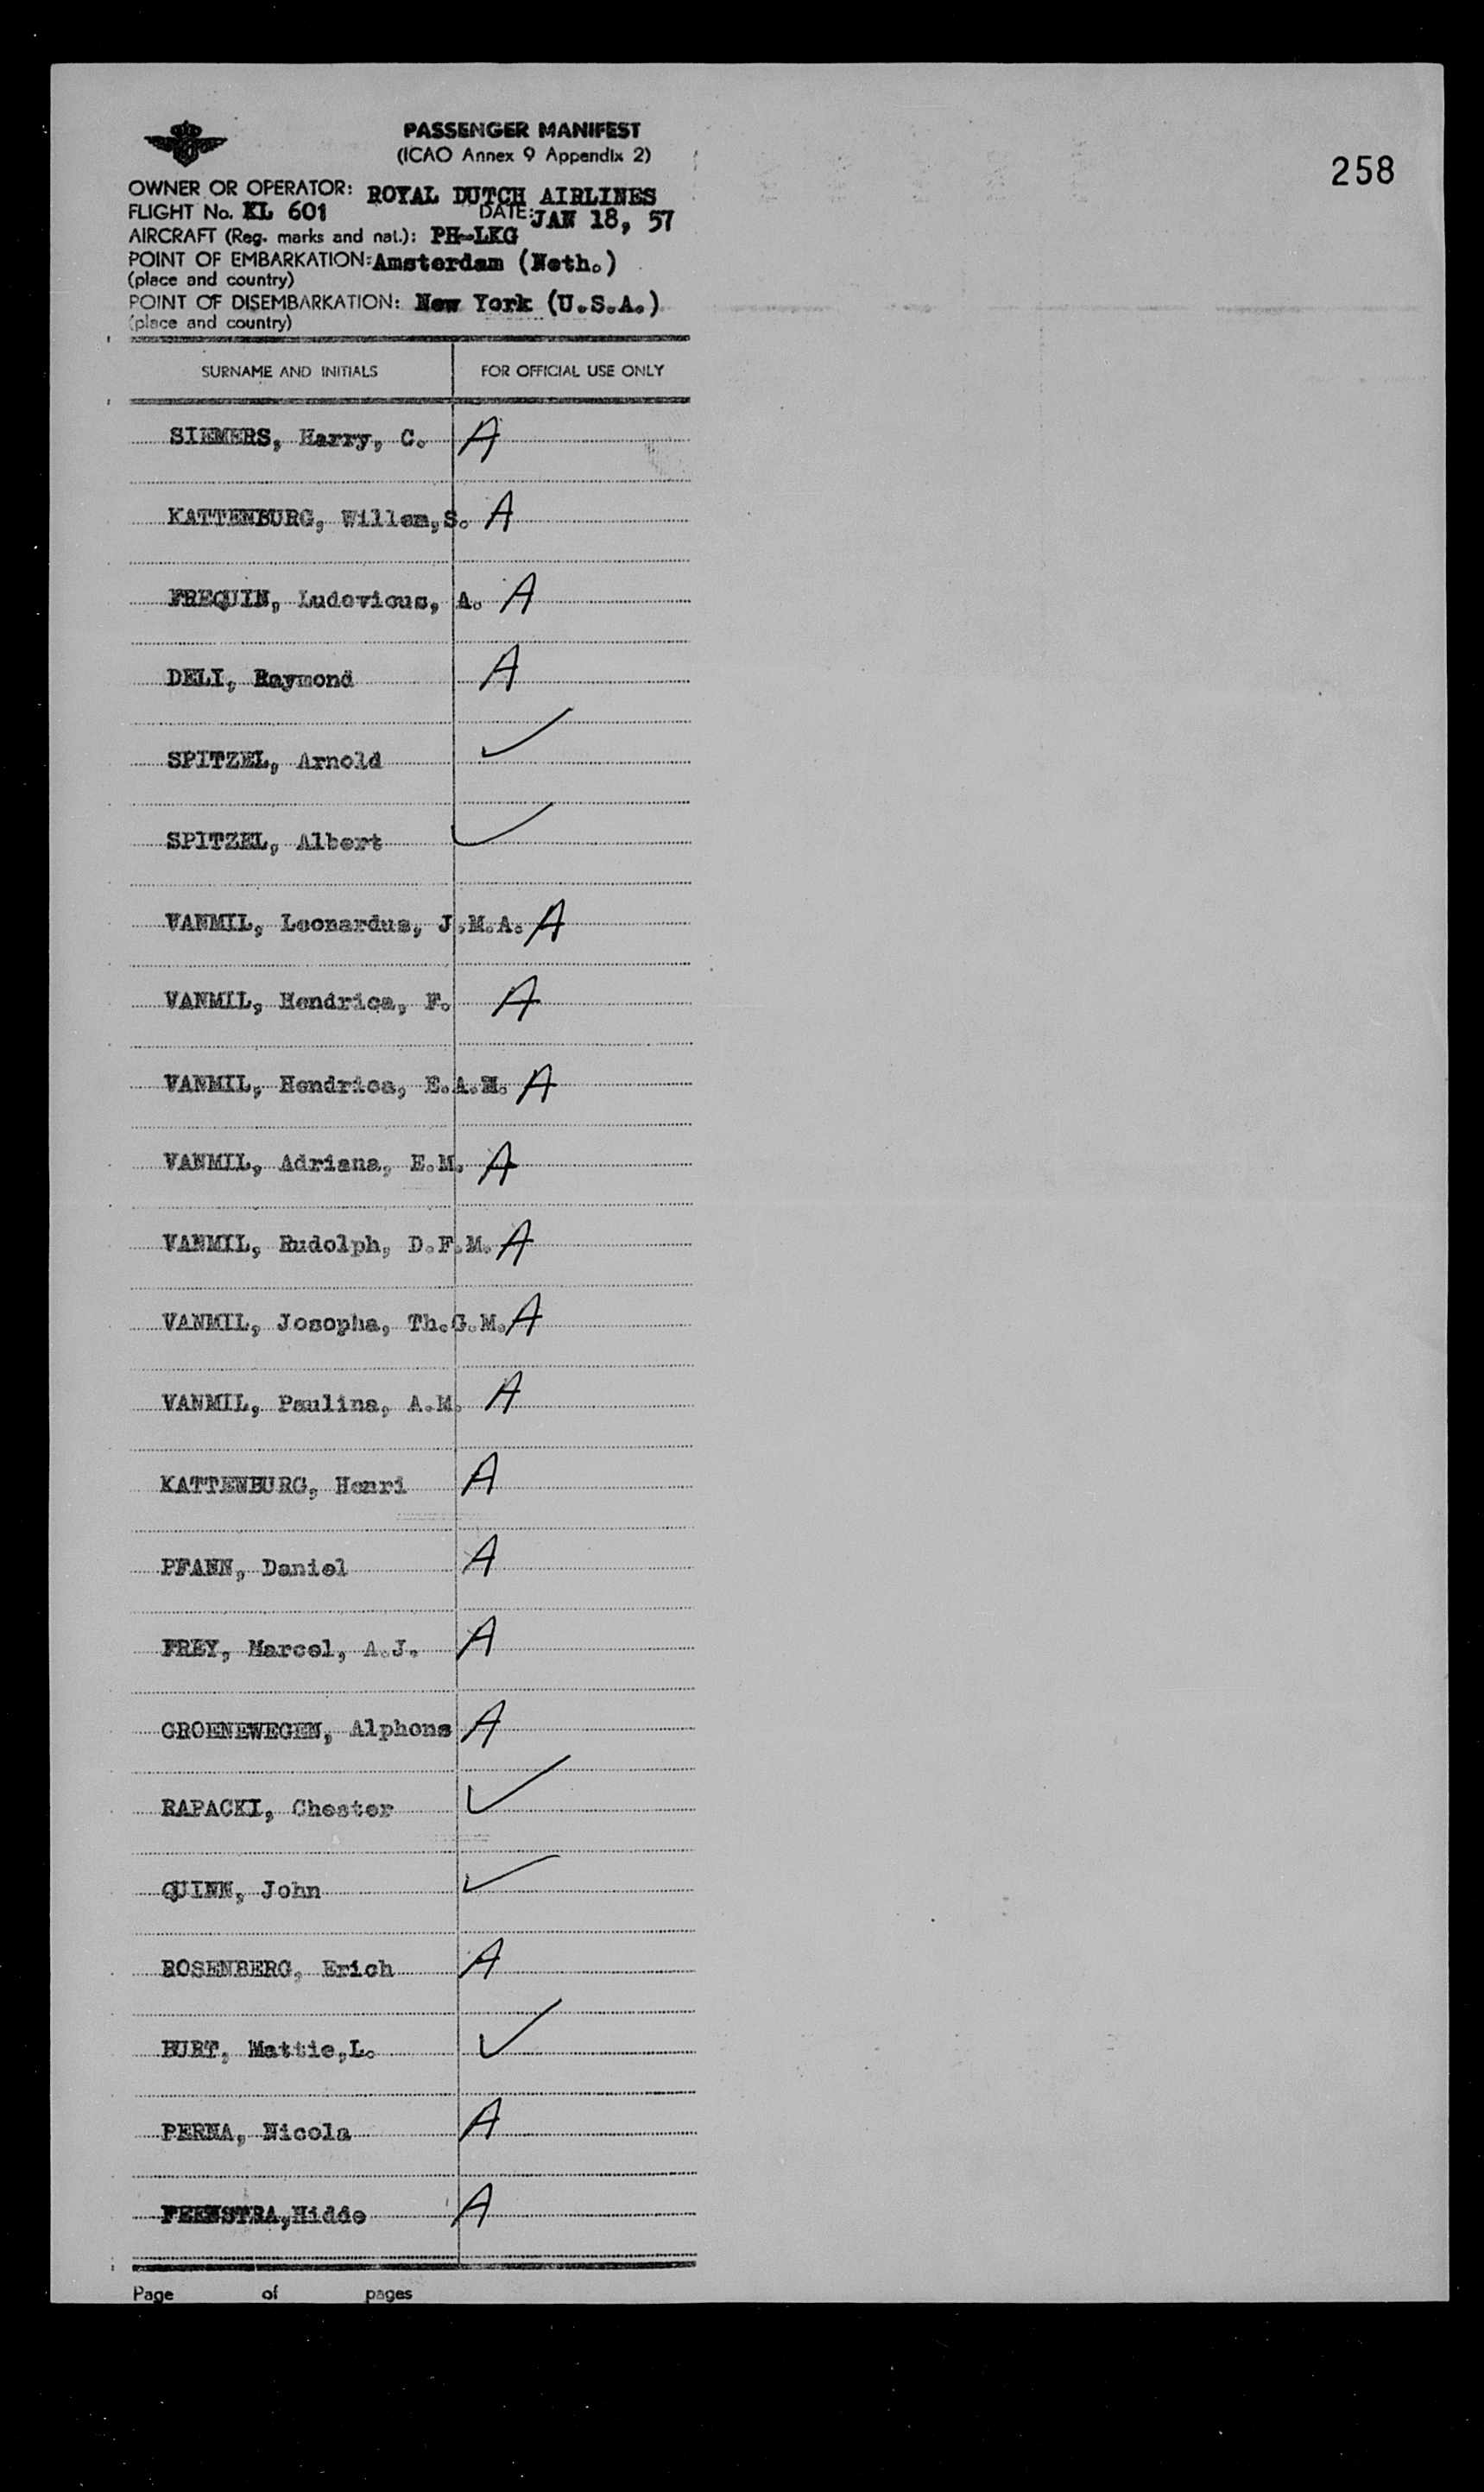 PASSENGER MANIFEST
(ICAO Annex 9 Appendix 2)
258
OWNER OR OPERATOR: ROYAL DUTCH AIRLINES
FLIGHT No. KL 601 DATE: JAN 18, 57
AIRCRAFT (Reg. marks and nat.): PH-LKG
POINT OF EMBARKATION: Amsterdam (Neth.)
(place and country)
POINT OF DISEMBARKATION: New York (U.S.A.)
(place and country)
SURNAME AND INITIALS FOR OFFICIAL USE ONLY
SIEMERS, Harry, C. A
KATTENBURG, Willem,S. A
FREQUIN, Ludovicus, A. A
DELI, Raymond A
SPITZEL, Arnold ✓
SPITZEL, Albert ✓
VANMIL, Leonardus, J.M.A. A
VANMIL, Hendrica, F. A
VANMIL, Hendrica, E.A.M. A
VANMIL, Adriana, E.M. A
VANMIL, Rudolph, D.F.M. A
VANMIL, Josepha, Th.G.M. A
VANMIL, Paulina, A.M. A
KATTENBURG, Henri A
PFANN, Daniel A
FREY, Marcel, A.J. A
GROENEWEGEN, Alphons A
RAPACKI, Chester ✓
QUINN, John ✓
ROSENBERG, Erich A
BURT, Mattie,L. ✓
PERNA, Nicola A
FEENSTRA,Hidde A
Page of pages